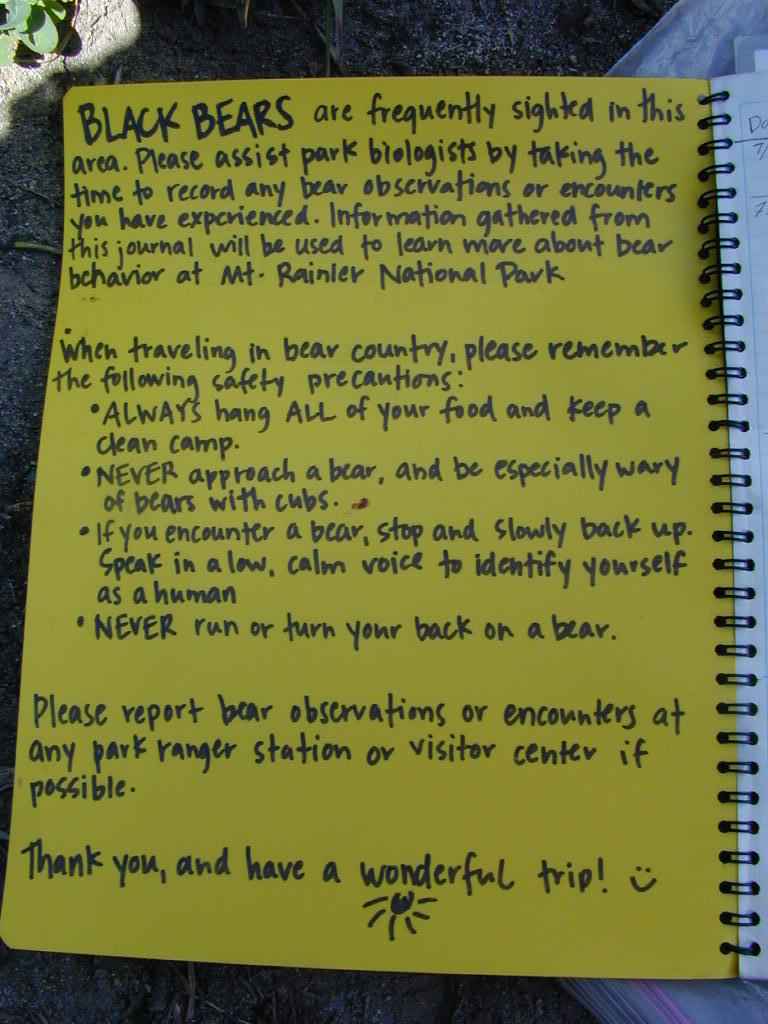 BLACK BEARS are frequently sighted in this
area. Please assist park biologists by taking the
time to record any bear observations or encounters
you have experienced. Information gathered from
this journal will be used to learn more about bear
behavior at Mt. Rainier National Park
When traveling in bear country, please remember
the following safety precautions:
• ALWAYS hang ALL of your food and keep a
clean camp.
• NEVER approach a bear, and be especially wary
of bears with cubs.
• If you encounter a bear, stop and slowly back up.
Speak in a low, calm voice to identify yourself
as a human
• NEVER run or turn your back on a bear.
Please report bear observations or encounters at
any park ranger station or visitor center if
possible.
Thank you, and have a wonderful trip! :)